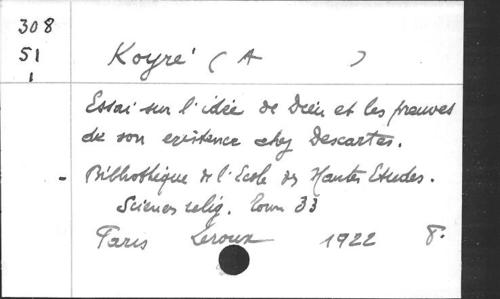 308
51
1
Koyré (A )
Essai sur l'idée de Dieu et les preuves
de son existence chez Descartes.
- Bibliothèque de l'Ecole des Hautes Etudes.
Sciences relig. Tom 33
Paris Leroux 1922 8°.